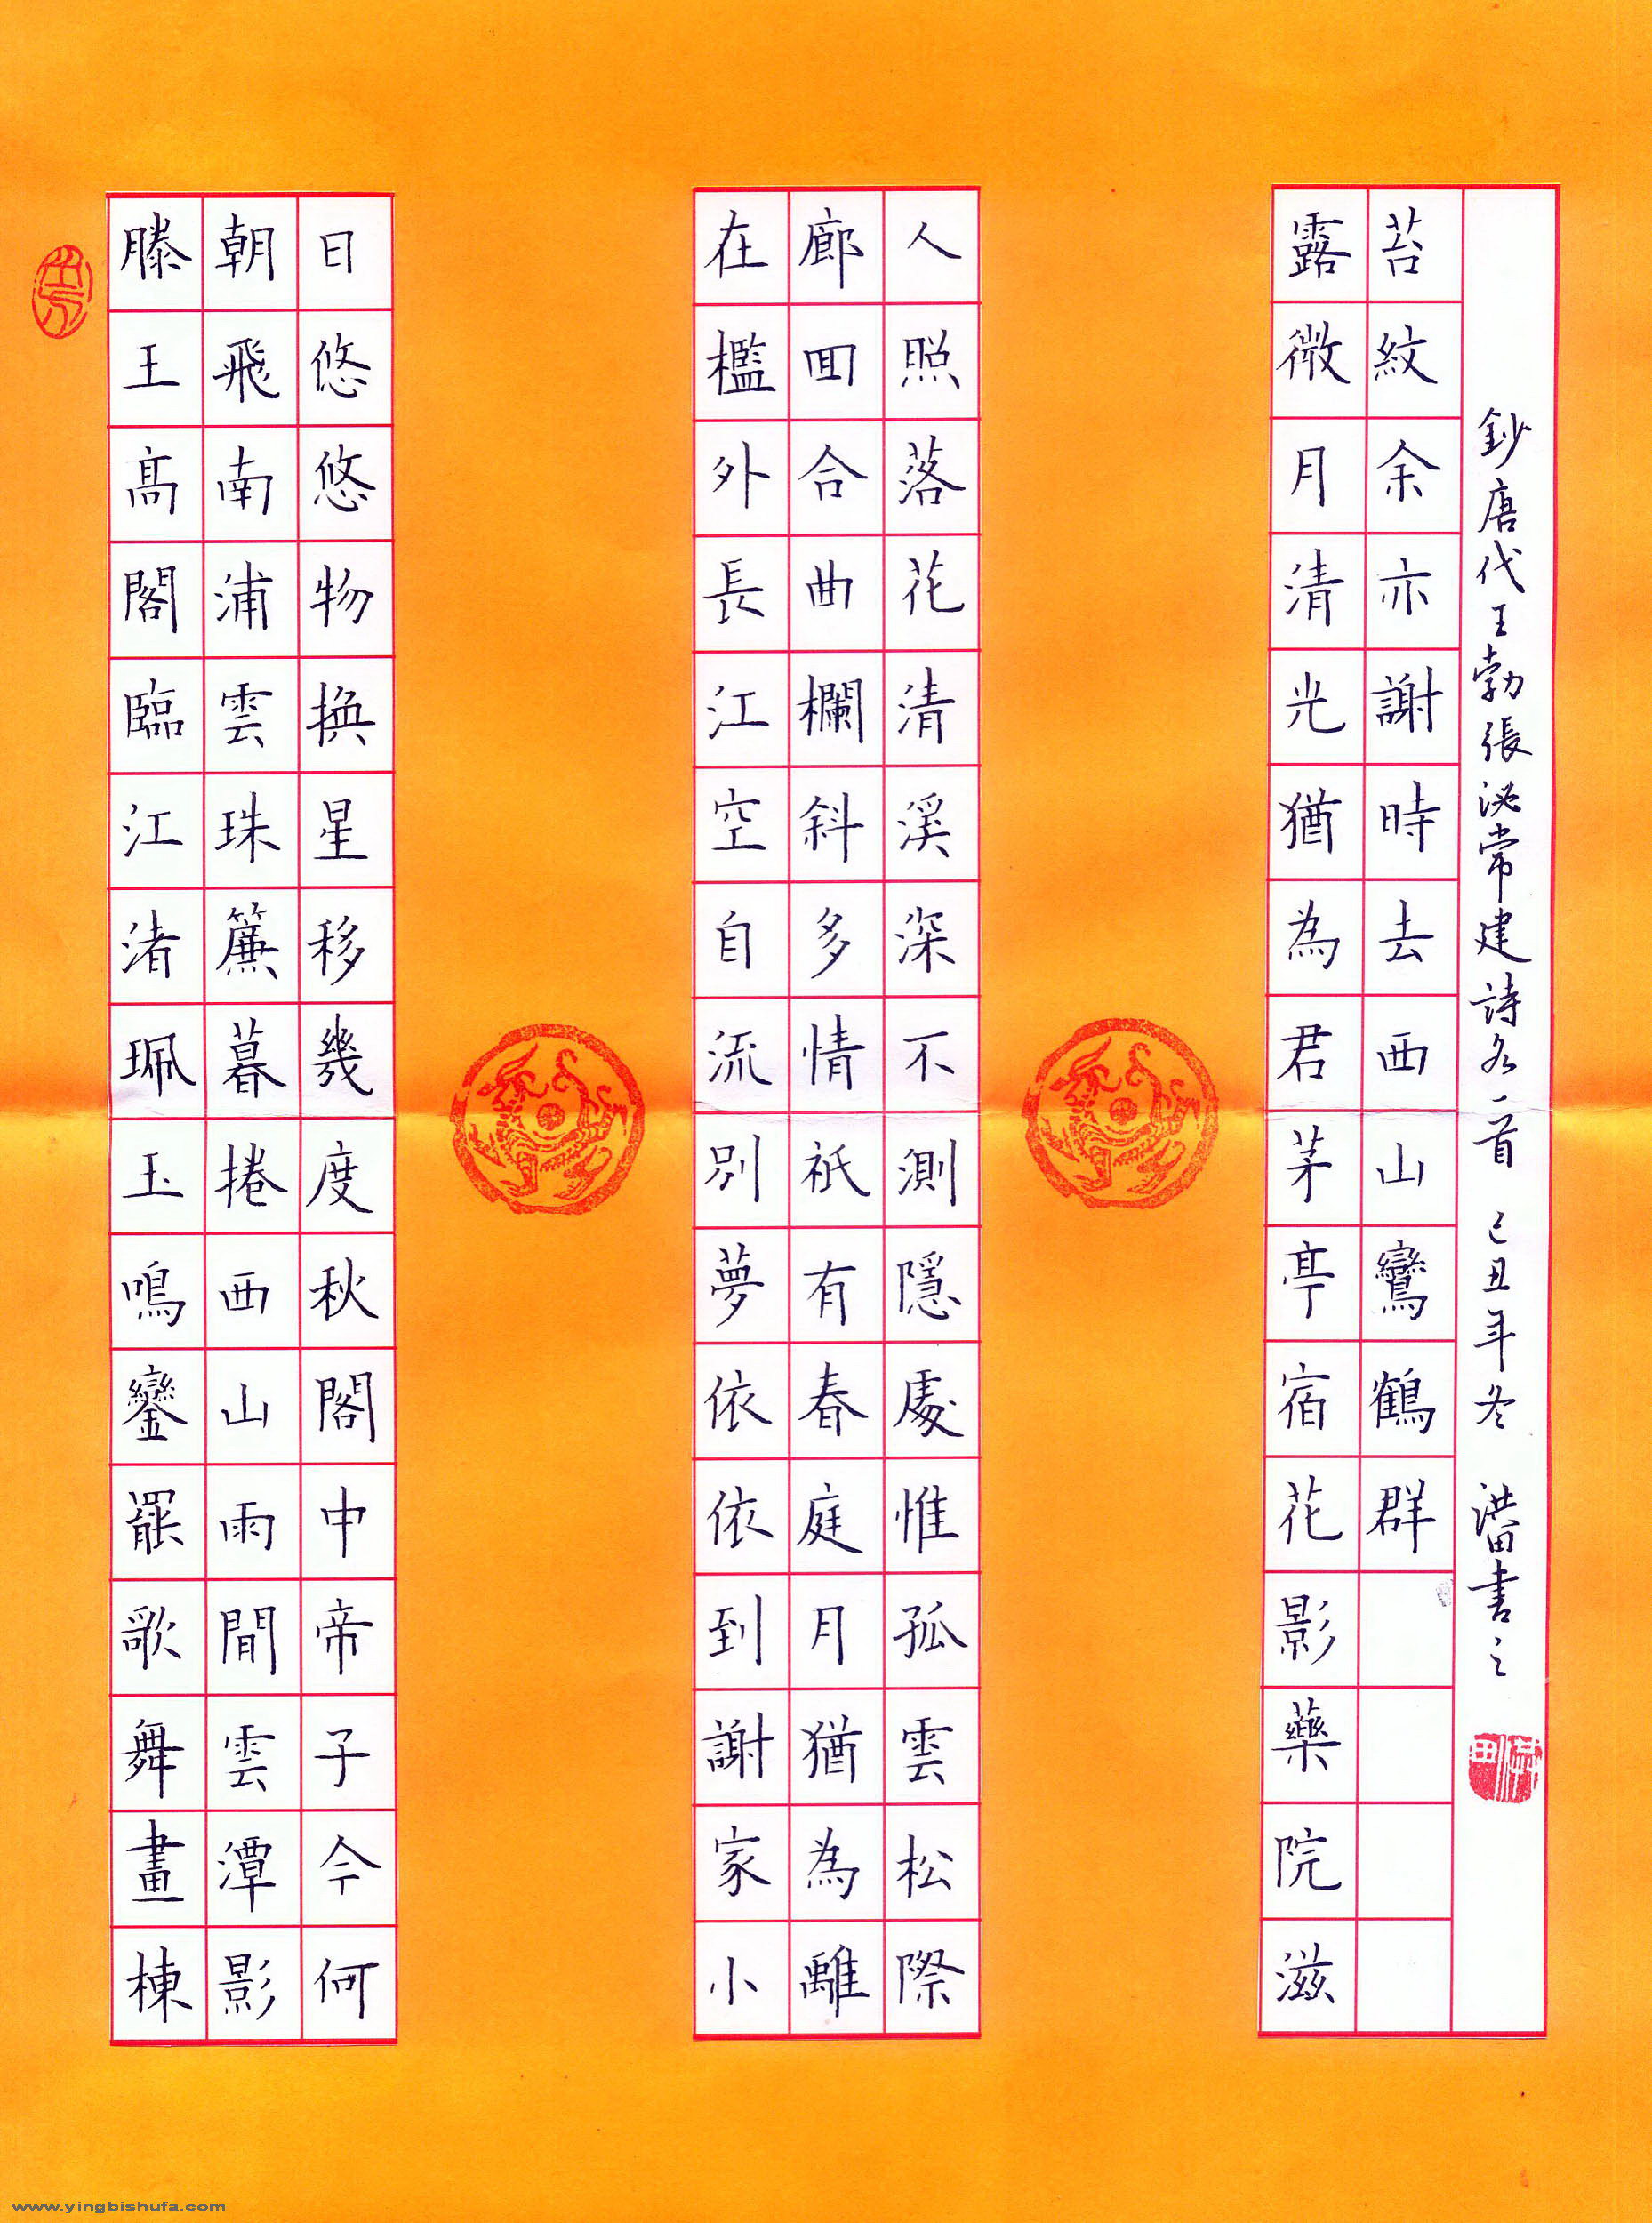 滕王髙閣臨江渚珮玉鳴鑾罷歌舞畫棟
朝飛南浦雲珠簾暮捲西山雨閒雲潭影
日悠悠物換星移幾度秋閣中帝子今何
在檻外長江空自流別夢依依到謝家小
廊囬合曲欄斜多情祇有春庭月猶為離
人照落花清溪深不測隱處惟孤雲松際
露微月清光猶為君茅亭宿花影藥院滋
苔紋余亦謝時去西山鸞鶴群
鈔唐代王勃張泌常建詩各一首 己丑年冬 洪田書之
www.yingbishufa.com